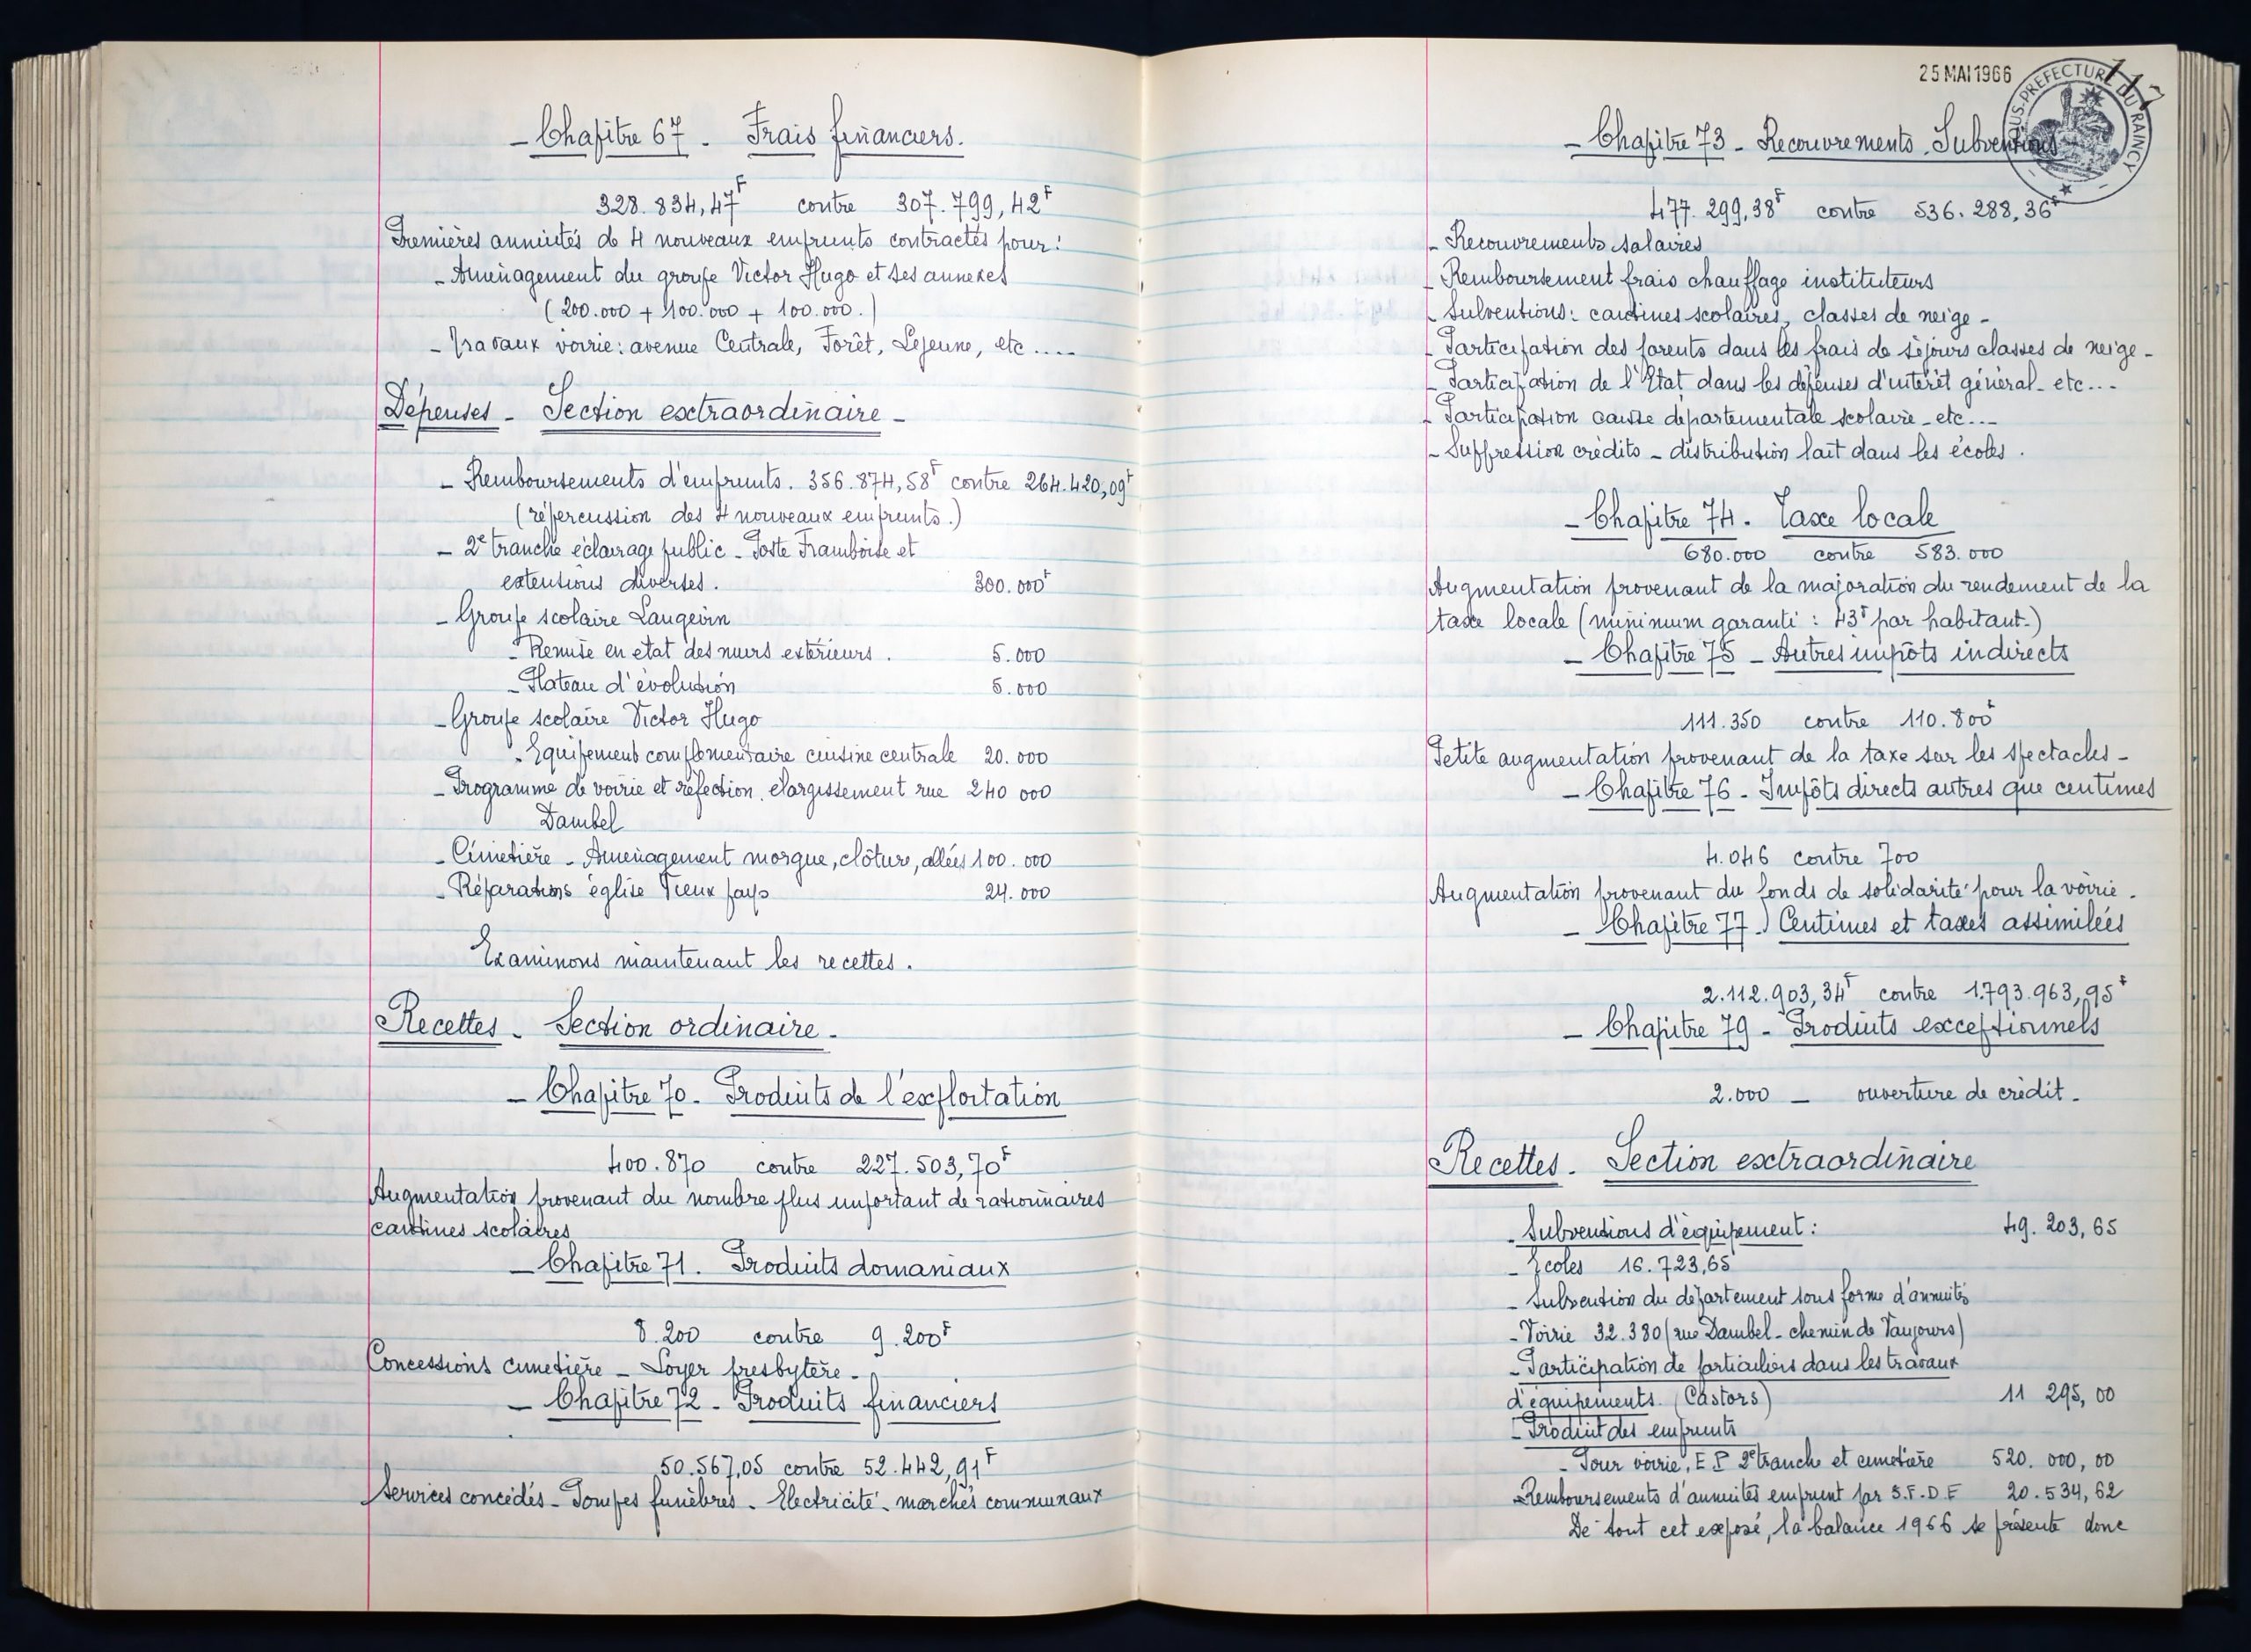 - Chapitre 67 - Frais financiers.
328.834,47F contre 307.799,42F
Premières annuités de 4 nouveaux emprunts contractés pour :
- Aménagement du groupe Victor Hugo et ses annexes
(200.000 + 100.000 + 100.000.)
- Travaux voirie : avenue Centrale, Forêt, Lejeune, etc ....
Dépenses - Section extraordinaire -
- Remboursements d'emprunts. 356.874,58F contre 264.420,09F
(répercussion des 4 nouveaux emprunts.)
- 2e tranche éclairage public - Poste Framboise et
extensions diverses. 300.000F
- Groupe scolaire Langevin
- Remise en état des murs extérieurs. 5.000
- Plateau d'évolution 5.000
- Groupe scolaire Victor Hugo
- Equipement complémentaire cuisine centrale 20.000
- Programme de voirie et réfection, élargissement rue 240 000
Dambel
- Cimetière - Aménagement morgue, clôture, allées 100.000
- Réparations église Vieux pays 24.000
Examinons maintenant les recettes.
Recettes - Section ordinaire -
- Chapitre 70 - Produits de l'exploitation
400.870 contre 227.503,70F
Augmentation provenant du nombre plus important de rationnaires
cantines scolaires
- Chapitre 71. Produits domaniaux
8.200 contre 9.200F
Concessions cimetière - Loyer presbytère -
- Chapitre 72 - Produits financiers
50.567,05 contre 52.442,91F
Services concédés - Pompes funèbres - Electricité - marchés communaux
25 MAI 1966
117
SOUS-PREFECTURE DU RAINCY
- Chapitre 73 - Recouvrements - Subventions
477.299,38F contre 536.288,36F
- Recouvrements salaires
- Remboursement frais chauffage instituteurs
- Subventions : cantines scolaires, classes de neige -
- Participation des parents dans les frais de séjours classes de neige -
- Participation de l'Etat dans les dépenses d'intérêt général - etc...
- Participation caisse départementale scolaire - etc...
- Suppression crédits - distribution lait dans les écoles.
- Chapitre 74. Taxe locale
680.000 contre 583.000
Augmentation provenant de la majoration du rendement de la
taxe locale (minimum garanti : 43F par habitant.)
- Chapitre 75 - Autres impôts indirects
111.350 contre 110.800F
Petite augmentation provenant de la taxe sur les spectacles -
- Chapitre 76 - Impôts directs autres que centimes
4.046 contre 700
Augmentation provenant du fonds de solidarité pour la voirie.
- Chapitre 77 - Centimes et taxes assimilées
2.112.903,34F contre 1.793.963,95F
- Chapitre 79 - Produits exceptionnels
2.000 - ouverture de crédit -
Recettes - Section extraordinaire
- Subventions d'équipement : 49.203,65
- Ecoles 16.723,65
- Subvention du département sous forme d'annuités
- Voirie 32.380 (rue Dambel - chemin de Vaujours)
- Participation de particuliers dans les travaux
d'équipements. (Castors) 11 295,00
- Produit des emprunts
- Pour voirie, E P 2e tranche et cimetière 520.000,00
- Remboursements d'annuités emprunt par S.F.D.E 20.534,62
De tout cet exposé, la balance 1966 se présente donc